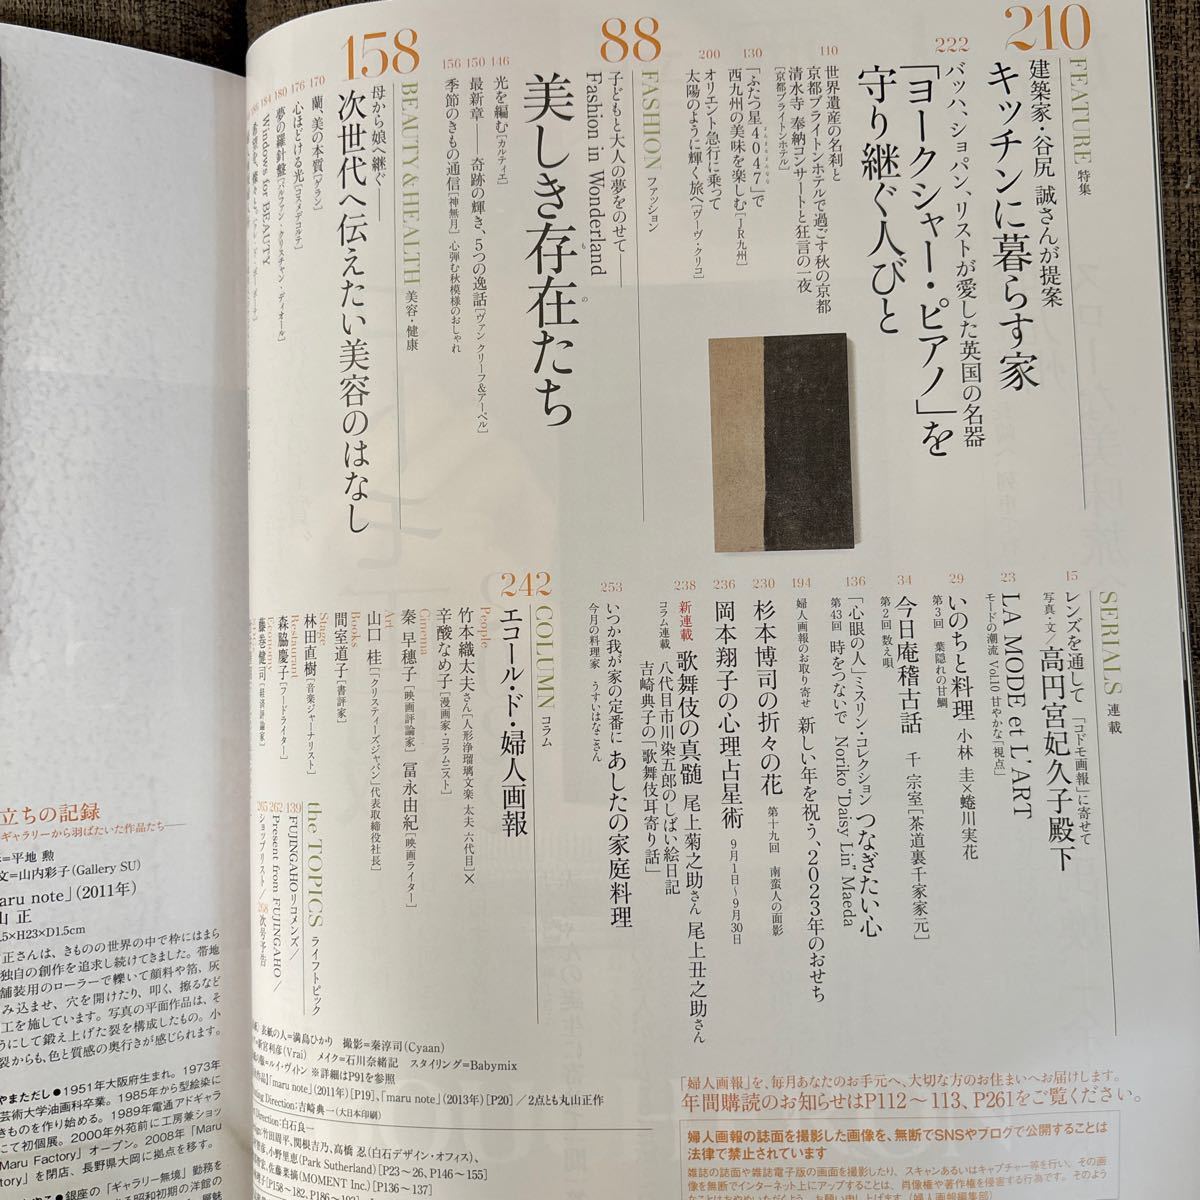 FEATURE 特集
210
建築家・谷尻 誠さんが提案
キッチンに暮らす家
222
バッハ、ショパン、リストが愛した英国の名器
「ヨークシャー・ピアノ」を
守り継ぐ人びと
110
世界遺産の名刹と
京都ブライトンホテルで過ごす秋の京都
清水寺 奉納コンサートと狂言の一夜
[京都ブライトンホテル]
130
「ふたつ星4047」で
西九州の美味を楽しむ[JR九州]
200
オリエント急行に乗って
太陽のように輝く旅へ[ヴーヴ・クリコ]
FASHION ファッション
88
子どもと大人の夢をのせて——
Fashion in Wonderland
美しき存在たち
もの
146
光を編む[カルティエ]
150
最新章——奇跡の輝き、5つの逸話[ヴァン クリーフ&アーペル]
156
季節のきもの通信[神無月] 心弾む秋模様のおしゃれ
BEAUTY&HEALTH 美容・健康
158
母から娘へ継ぐ——
次世代へ伝えたい美容のはなし
170
蘭、美の本質[ゲラン]
176
心ほどける光[コスメデコルテ]
180
夢の羅針盤[パルファン・クリスチャン・ディオール]
184
Windows for BEAUTY
SERIALS 連載
15
レンズを通して 「コドモ画報」に寄せて
写真・文/高円宮妃久子殿下
23
LA MODE et L'ART
モードの潮流 Vol.10 甘やかな「視点」
29
いのちと料理 小林 圭×蜷川実花
第3回 葉隠れの甘鯛
34
今日庵稽古話 千 宗室[茶道裏千家家元]
第2回 数え唄
136
「心眼の人」ミスリン・コレクション つなぎたい心
第43回 時をつないで Noriko "Daisy Lin" Maeda
194
婦人画報のお取り寄せ 新しい年を祝う、2023年のおせち
230
杉本博司の折々の花 第十九回 南蛮人の面影
236
岡本翔子の心理占星術 9月1日〜9月30日
238
新連載 歌舞伎の真髄 尾上菊之助さん 尾上丑之助さん
コラム連載 八代目市川染五郎のしばい絵日記
吉崎典子の「歌舞伎耳寄り話」
253
いつか我が家の定番に あしたの家庭料理
今月の料理家 うすいはなこさん
COLUMN コラム
242
エコール・ド・婦人画報
People
竹本織太夫さん[人形浄瑠璃文楽 太夫 六代目]×
辛酸なめ子[漫画家・コラムニスト]
Cinema
秦 早穂子[映画評論家] 冨永由紀[映画ライター]
Art
山口 桂[「クリスティーズジャパン」代表取締役社長]
Books
間室道子[書評家]
Stage
林田直樹[音楽ジャーナリスト]
Restaurant
森脇慶子[フードライター]
Economy
藤巻健司[経済評論家]
the TOPICS ライフトピック
139 FUJINGAHOリコメンズ/
262 Present from FUJINGAHO/
265 ショップリスト/268 次号予告
表紙の人=満島ひかり 撮影=秦淳司(Cyaan)
新宮利彦(Vrai) メイク=石川奈緒記 スタイリング=Babymix
ルイ・ヴィトン ※詳細はP91を参照
「maru note」(2011年)[P19]、「maru note」(2013年)[P20]/2点とも丸山正作
Direction:吉崎典一(大日本印刷)
Direction:白石良一
竹田周平、関根吉乃、高橋 忍(白石デザイン・オフィス)、
小野里恵(Park Sutherland)[P23〜26、P146〜155]
佐藤菜摘(MOMENT Inc.)[P136〜137]
「婦人画報」を、毎月あなたのお手元へ、大切な方のお住まいへお届けします。
年間購読のお知らせはP112〜113、P261をご覧ください。
婦人画報の誌面を撮影した画像を、無断でSNSやブログで公開することは
法律で禁止されています
雑誌の誌面や雑誌電子版の画面を撮影したり、スキャンあるいはキャプチャー等を行い、その画
像を無断でインターネット上にアップすることは、肖像権や著作権を侵害する行為です。そのよう
立ちの記録
ギャラリーから羽ばたいた作品たち——
=平地 勲
文=山内彩子(Gallery SU)
maru note」(2011年)
山 正
.5×H23×D1.5cm
正さんは、きものの世界の中で枠にはまら
独自の創作を追求し続けてきました。帯地
舗装用のローラーで轢いて顔料や箔、灰
み込ませ、穴を開けたり、叩く、擦るなど
工を施しています。写真の平面作品は、そ
うにして鍛え上げた裂を構成したもの。小
裂からも、色と質感の奥行きが感じられます。
やまただし●1951年大阪府生まれ。1973年
芸術大学油画科卒業。1985年から型絵染に
きものを作り始める。1989年電通アドギャラ
にて初個展。2000年外苑前に工房兼ショッ
Maru Factory」オープン。2008年「Maru
ctory」を閉店、長野県大岡に拠点を移す。
●銀座の「ギャラリー無境」勤務を